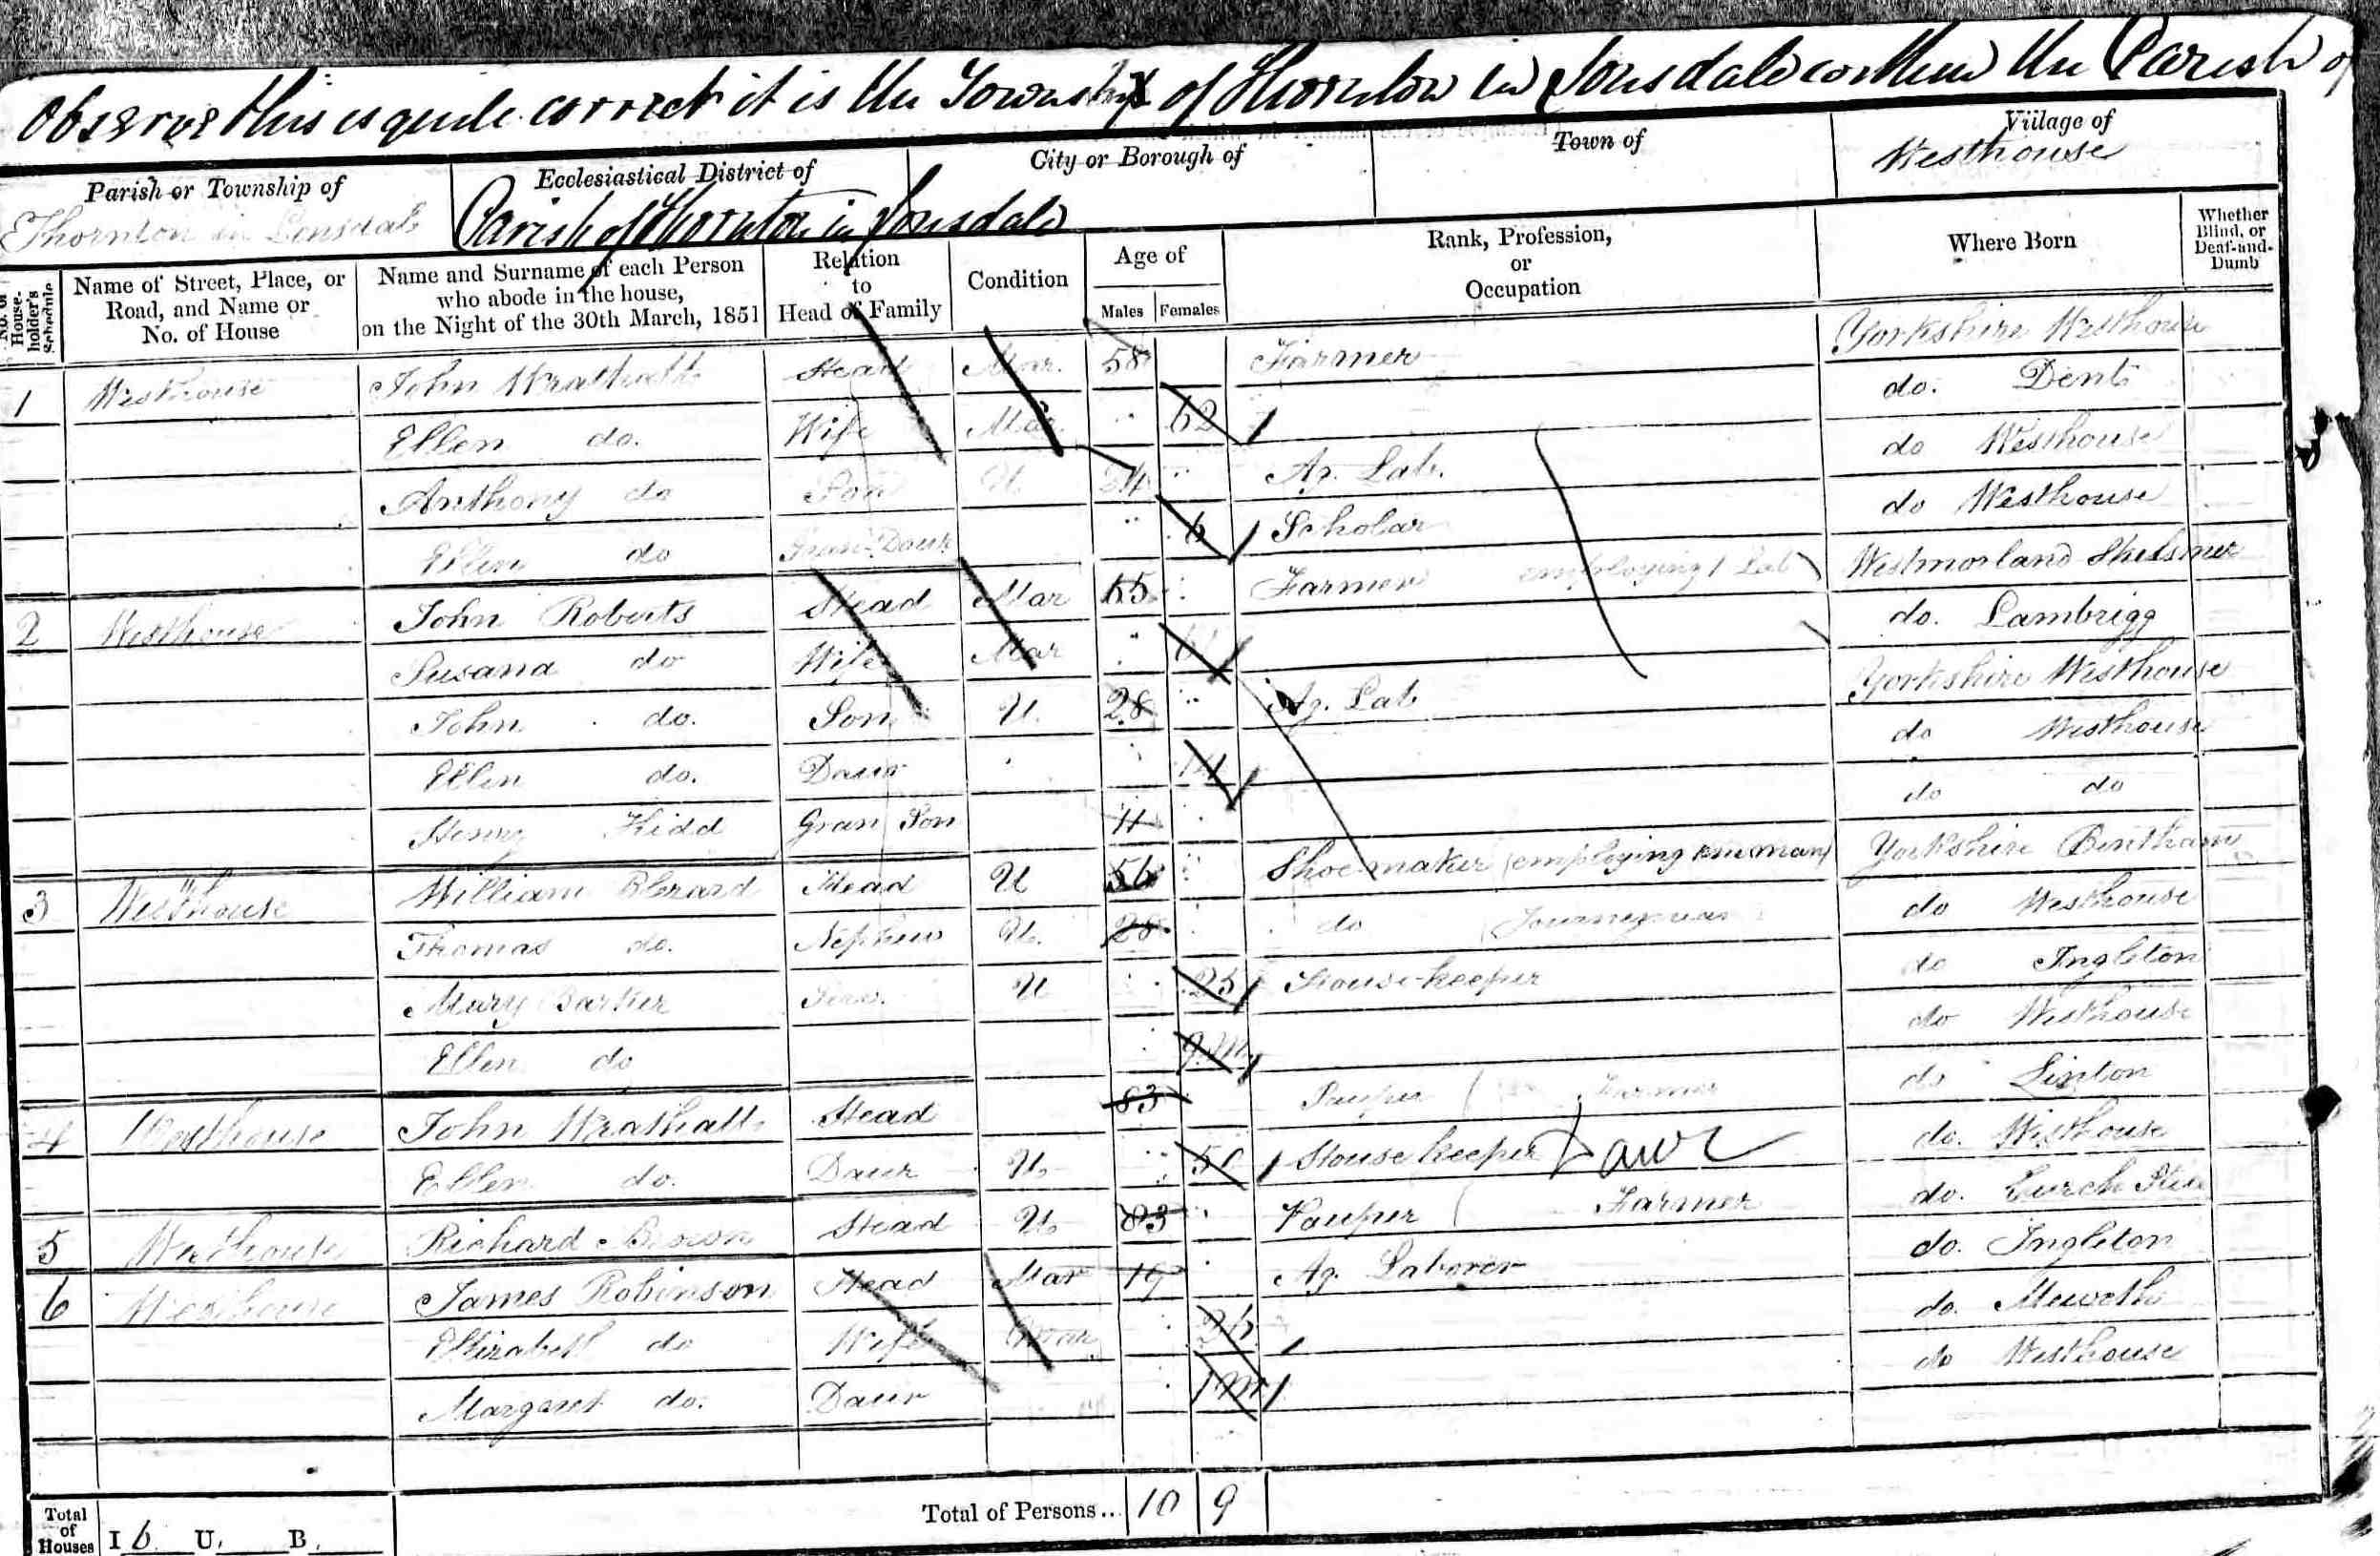 Observe this is quite correct it is the Township of Thornton in Lonsdale within the Parish of
Parish or Township of
Thornton in Lonsdale
Ecclesiastical District of
Parish of Thornton in Lonsdale
City or Borough of
Town of
Village of
Westhouse
No. of House-holder's Schedule
Name of Street, Place, or Road, and Name or No. of House
Name and Surname of each Person who abode in the house, on the Night of the 30th March, 1851
Relation to Head of Family
Condition
Age of
Males Females
Rank, Profession, or Occupation
Where Born
Whether Blind, or Deaf-and-Dumb
1 Westhouse John Wrathall Head Mar. 58 Farmer Yorkshire Westhouse
Ellen do. Wife Mar. 62 do. Dent
Anthony do Son U 24 Ag. Lab. do Westhouse
Ellen do Gran Daur 6 Scholar do Westhouse
2 Westhouse John Roberts Head Mar 65 Farmer employing 1 Lab Westmorland
Susana do Wife Mar do. Lambrigg
John do. Son U. 28 Ag. Lab Yorkshire Westhouse
Ellen do. Daur 14 do Westhouse
Henry Kidd Gran Son 11 do do
3 Westhouse William Blezard Head U 56 Shoe maker (employing one man) Yorkshire Bentham
Thomas do. Nephew U. 28 do (Journeyman) do Westhouse
Mary Barker Serv. U 25 House-keeper do Ingleton
Ellen do 9 m do Westhouse
4 Westhouse John Wrathall Head 83 Pauper ( Farmer do Linton
Ellen do. Daur U. 50 House keeper Daur do. Westhouse
5 Westhouse Richard Head U 83 Pauper ( Farmer do.
6 Westhouse James Robinson Head Mar 19 Ag. Laborer do. Ingleton
Elizabeth do Wife Mar 26 do.
Margaret do. Daur 1 m do Westhouse
Total of Houses I 6 U. B.
Total of Persons... 10 9